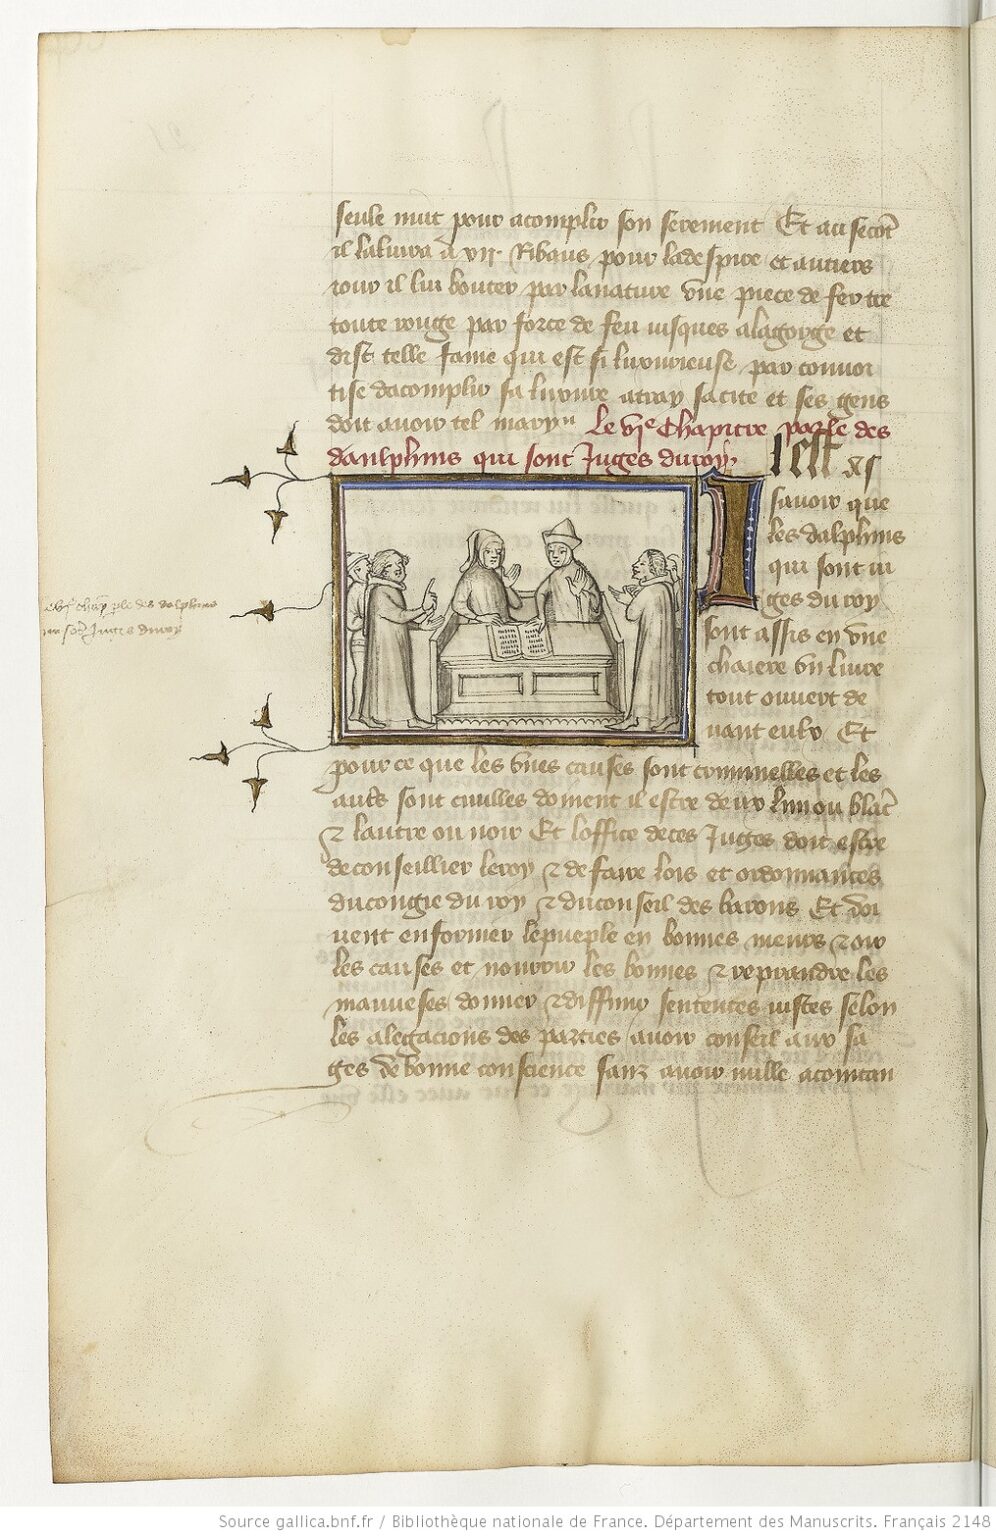 seule nuit pour acomplir son serement Et au secōt
il laluira a vii. Ribaus pour la despire et au tiers
iour il lui bouter par la nature vne piece de fer tre
toute rouge par force de feu iusques a la gorge et
dist telle fame qui est si luxurieuse par conuoi
tise dacomplir sa luxure atray sa cite et ses gens
doit auoir tel mary Le vjᵉ Chapitre parle des
daulphins qui sont Juges du roy.
Il est ds
sauoir que
les dalphins
qui sont iu
ges du roy
sont assis en vne
chaiere vn liure
tout ouuert de
uant eulx Et
pour ce que les vnes causes sont criminelles et les
autrs sont ciuilles doiuent il estre deux lun ou blāc
⁊ lautre ou noir Et loffice de ces Juges doit estre
de conseillier le roy ⁊ de faire lois et ordonnances
du congie du roy ⁊ du conseil des barons Et doi
uent enformer le pueple en bonnes meurs ⁊ oir
les causes et nourrir les bonnes ⁊ reprandre les
mauueses donner ⁊ diffinir sentences iustes selon
les alegacions des parties auoir conseil aux sa
ges de bonne conscience sanz auoir nulle acointan
vjᵉ chap̄ ple des dalphins
sōt Juges du roy
Source gallica.bnf.fr / Bibliothèque nationale de France. Département des Manuscrits. Français 2148